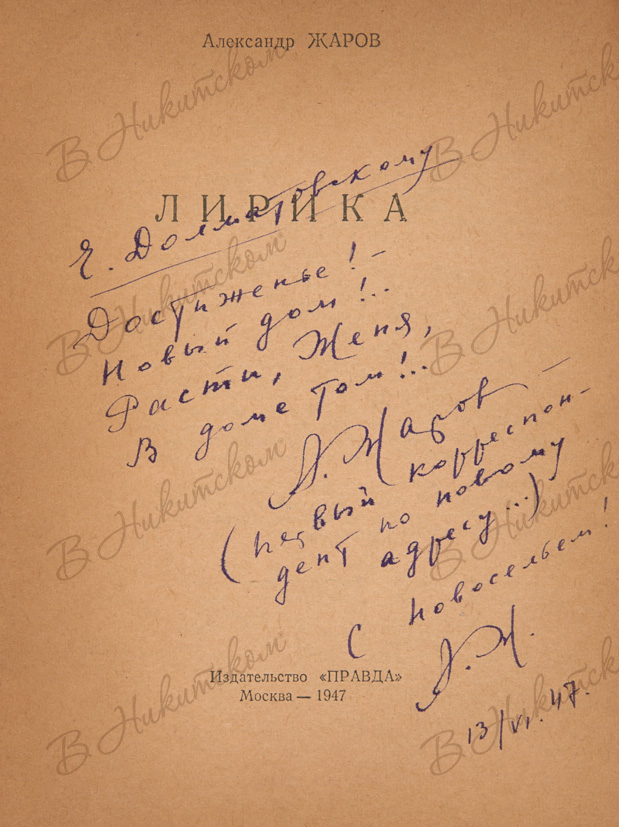 Александр ЖАРОВ
ЛИРИКА
Е. Долматовскому
Достиженье! –
Новый дом!..
Расти, Женя,
В доме том!..
А. Жаров –
(первый корреспон-
дент по новому
адресу...)
С новосельем!
А. Ж.
13/VI. 47.
Издательство «ПРАВДА»
Москва — 1947
В Никитском
В Никитском
В Никитском
В Никитском
В Никитском
В Никитском
В Никитском
В Никитском